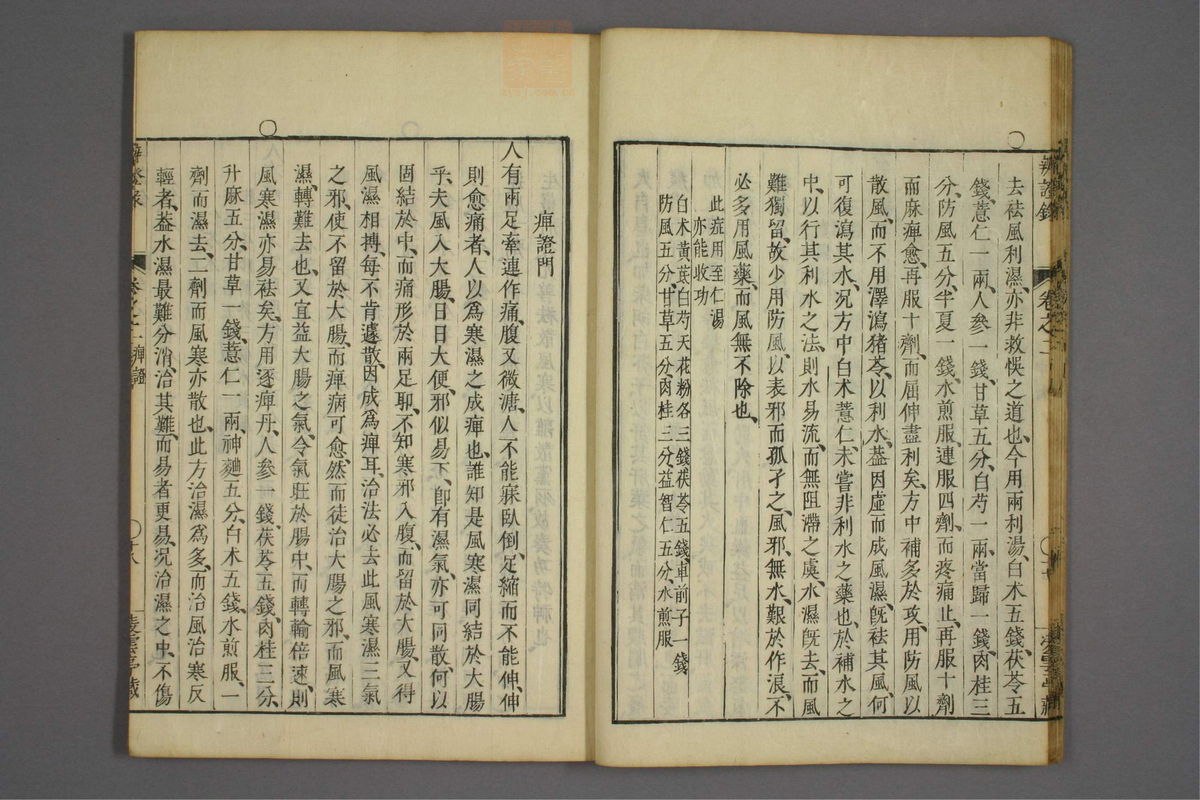 去祛風利濕、亦非救悞之道也、今用兩利湯、白术五錢、茯苓五
錢、薏仁一兩、人參一錢、甘草五分、白芍一兩、當歸一錢、肉桂三
分、防風五分、半夏一錢、水煎服、連服四劑、而疼痛止、再服十劑
而麻痺愈、再服十劑、而屈伸盡利矣、方中補多於攻、用防風以
散風、而不用澤瀉猪苓、以利水、葢因虛而成風濕、旣祛其風、何
可復瀉其水、況方中白术薏仁、未嘗非利水之藥也、於補水之
中、以行其利水之法、則水易流、而無阻滯之虞、水濕旣去、而風
難獨留、故少用防風、以表邪、而孤孑之風邪、無水艱於作浪、不
必多用風藥、而風無不除也、
此症用至仁湯
亦能收功
白术黃芪白芍天花粉各三錢茯苓五錢、車前子一錢
防風五分、甘草五分、肉桂三分、益智仁五分、水煎服
辨證錄
卷之二
痺證門
人有兩足牽連作痛、腹又微溏、人不能寐、臥倒、足縮而不能伸、伸
則愈痛者、人以爲寒濕之成痺也、誰知是風寒濕同結於大腸
乎、夫風入大腸、日日大便、邪似易下、卽有濕氣、亦可同散、何以
固結於中、而痛形於兩足耶、不知寒邪入腹、而留於大腸、又得
風濕相搏、每不肯遽散、因成爲痺耳、治法必去此風寒濕三氣
之邪、使不留於大腸、而痺病可愈、然而徒治大腸之邪、而風寒
濕、轉難去也、又宜益大腸之氣、令氣旺於腸中、而轉輸倍速、則
風寒濕亦易祛矣、方用逐痺丹、人參一錢、茯苓五錢、肉桂三分、
升麻五分、甘草一錢、薏仁一兩、神麯五分、白术五錢、水煎服、一
劑而濕去、二劑而風寒亦散也、此方治濕爲多、而治風治寒反
輕者、葢水濕最難分消、治其難、而易者更易、況治濕之中、不傷
卷之二 痺證